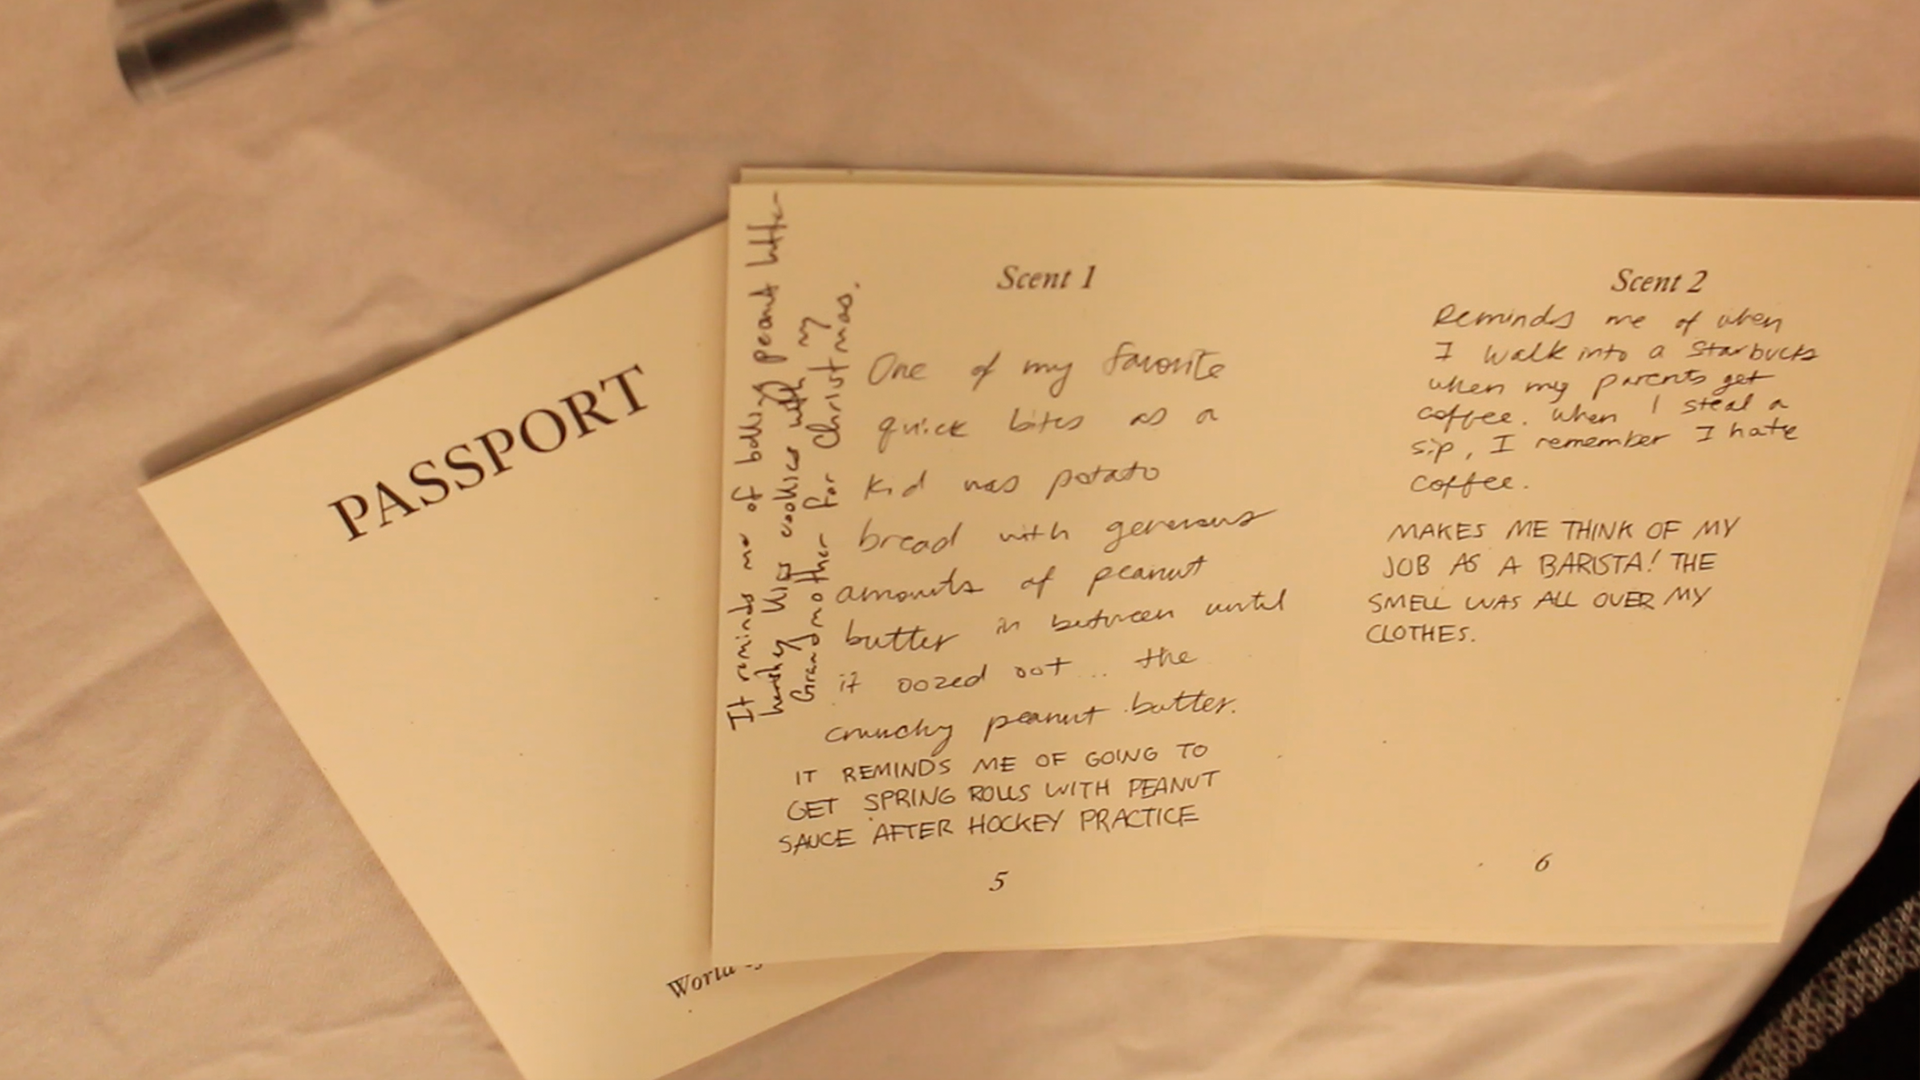 PASSPORT
World
It reminds me of baking peanut butter
hershey kiss cookies with my
Grandmother for Christmas.
Scent 1
One of my favorite
quick bites as a
kid was potato
bread with generous
amounts of peanut
butter in between until
it oozed out... the
crunchy peanut butter.
IT REMINDS ME OF GOING TO
GET SPRING ROLLS WITH PEANUT
SAUCE AFTER HOCKEY PRACTICE
5
Scent 2
Reminds me of when
I walk into a Starbucks
when my parents get
coffee. When I steal a
sip, I remember I hate
coffee.
MAKES ME THINK OF MY
JOB AS A BARISTA! THE
SMELL WAS ALL OVER MY
CLOTHES.
6